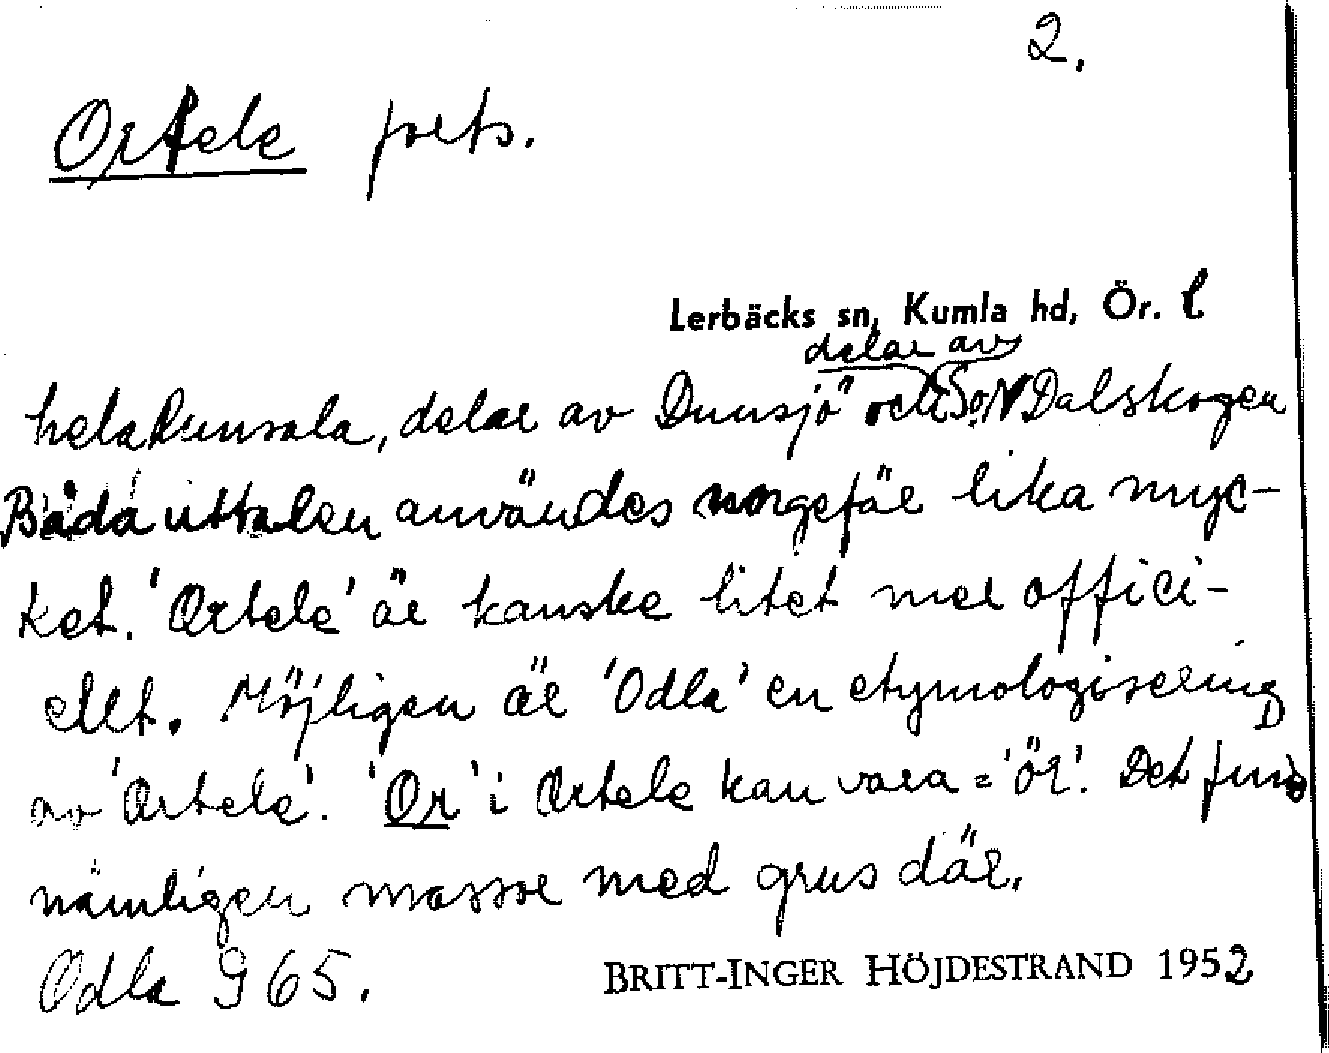 2.
Ortele forts.
Lerbäcks sn, Kumla hd, Ör. l
delar av
hela Runsala, delar av Dunsjö och S. o. N Dalskogen
Båda uttalen användes ungefär lika myc-
ket. 'Ortele' är kanske litet mer offici-
ellt. Möjligen är 'Odla' en etymologisering
av 'Ortele'. 'Or' i Ortele kan vara = 'ör'. Det finns
nämligen massor med grus där.
Odla 965.
BRITT-INGER HÖJDESTRAND 1952